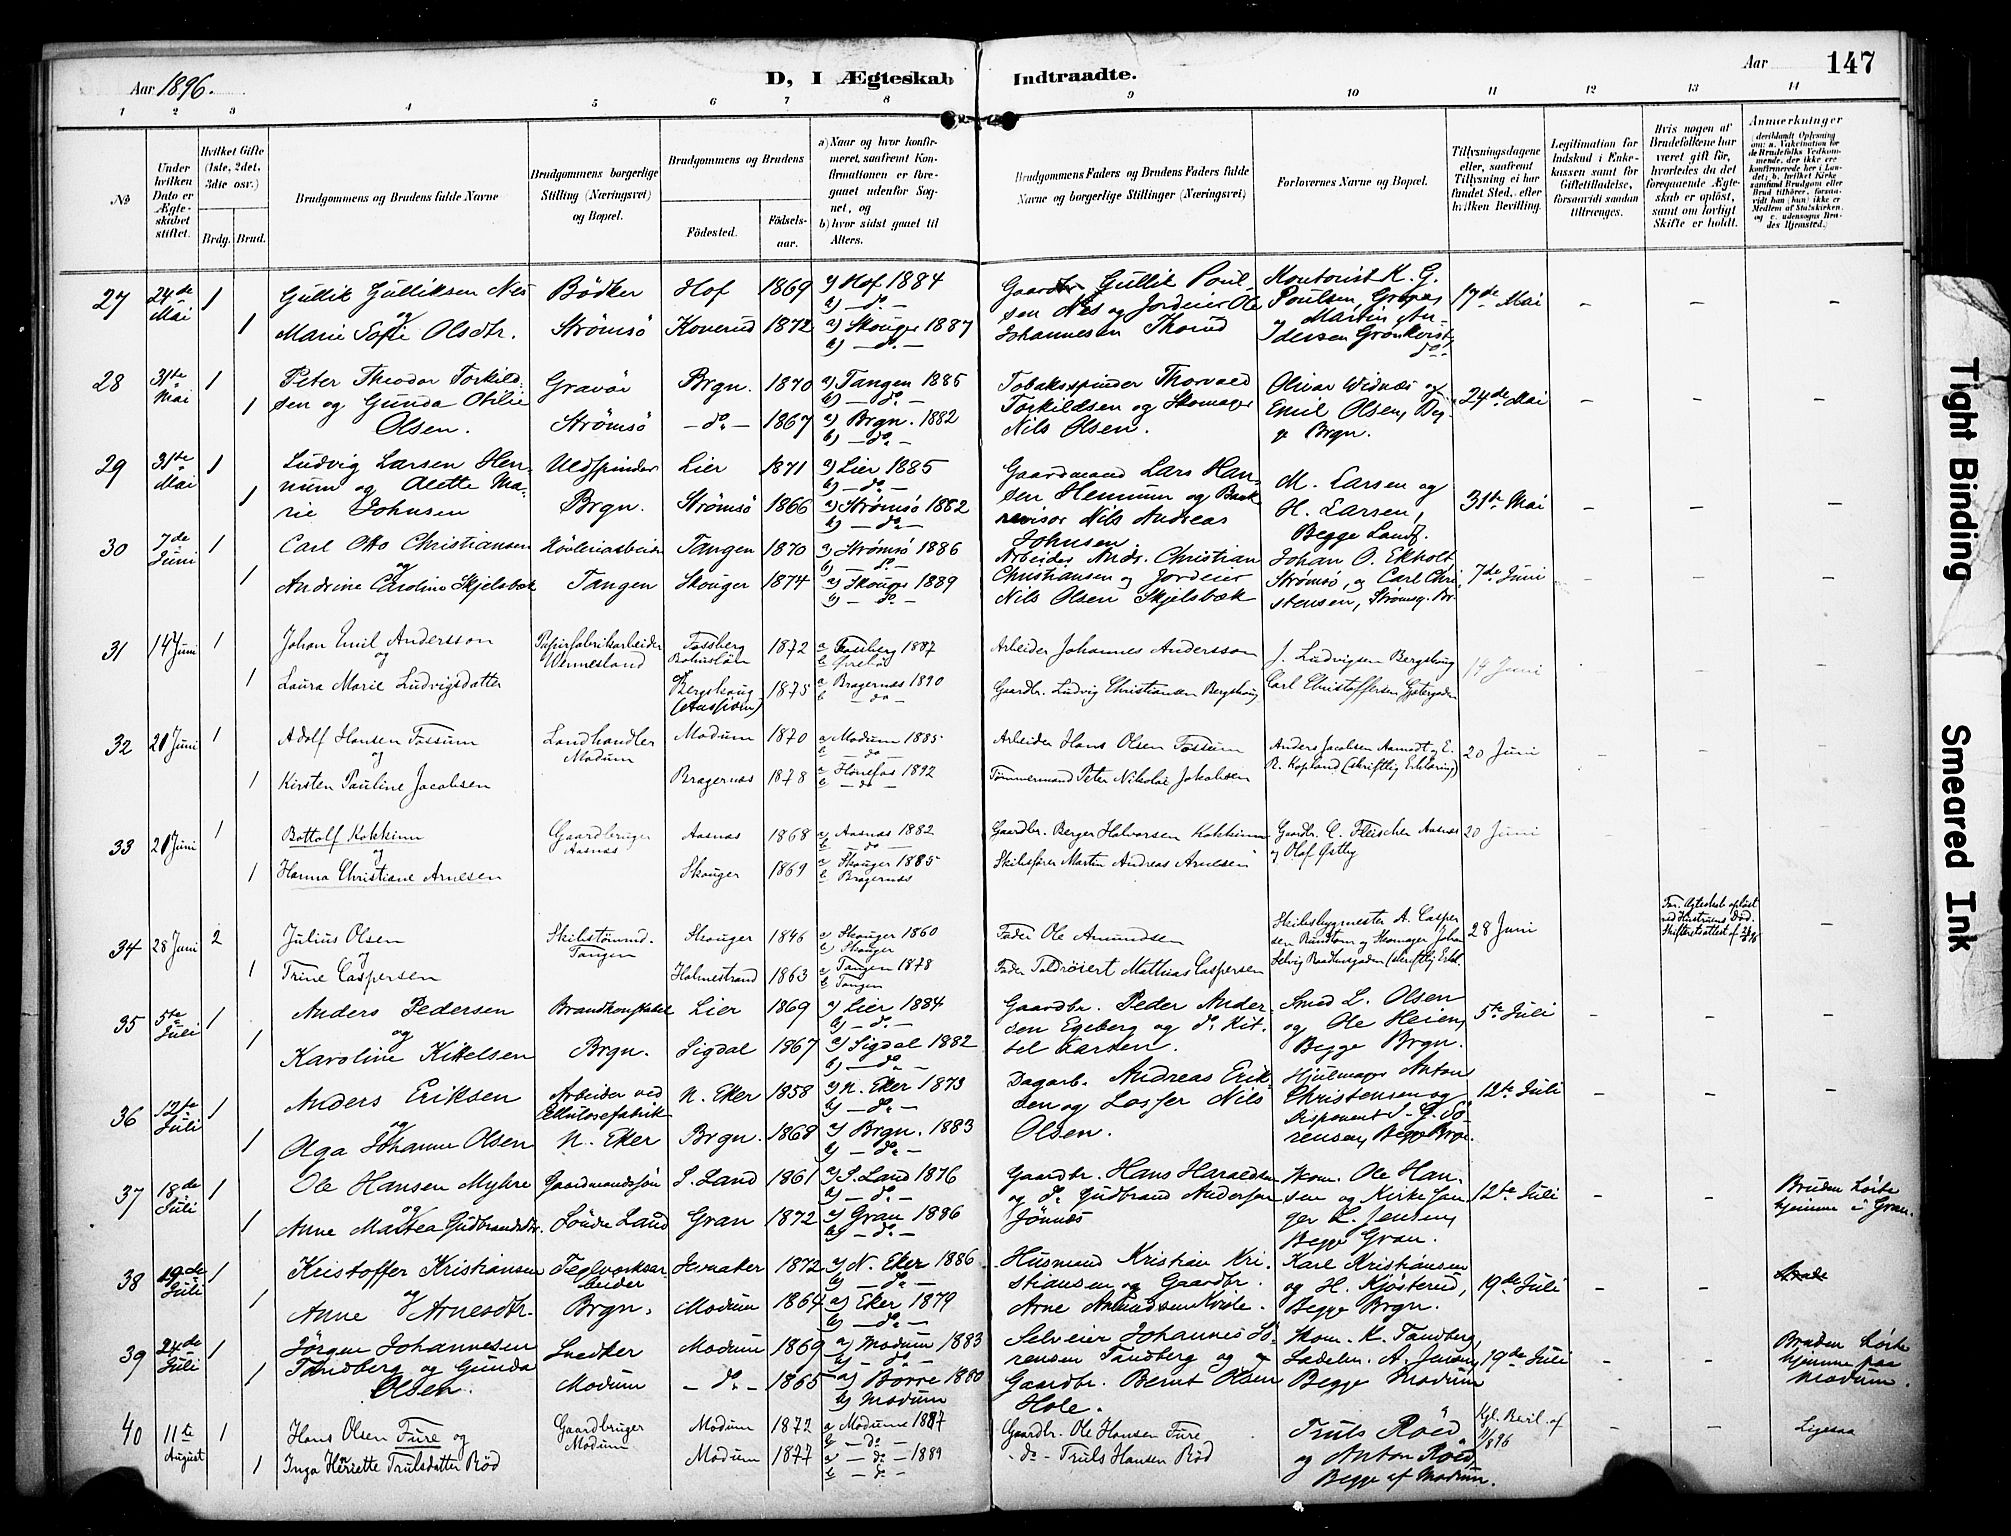 Aar 1896.
D, I Ægteskab Indtraadte.
Aar
147
1 2 3 4 5 6 7 8 9 10 11 12 13 14
No
Under hvilken Dato er Ægteskabet stiftet.
Hvilket Gifte (1ste, 2det, 3die osv.)
Brdg. Brud.
Brudgommens og Brudens fulde Navne
Brudgommens borgerlige Stilling (Næringsvei) og Bopæl.
Brudgommens og Brudens
Fødested.
Fødselsaar.
a) Naar og hvor konfirmeret, saafremt Konfirmationen er foregaaet udenfor Sognet, og
b) hvor sidst gaaet til Alters.
Brudgommens Faders og Brudens Faders fulde Navne og borgerlige Stillinger (Næringsvei)
Forlovernes Navne og Bopæl.
Tillysningsdagene eller, saafremt Tillysning ei har fundet Sted, efter hvilken Bevilling.
Legitimation for Indskud i Enkekassen samt for Giftetilladelse, forsaavidt saadan tiltrænges.
Hvis nogen af Brudefolkene har været gift før, hvorledes da det foregaaende Ægteskab er opløst, samt om lovligt Skifte er holdt.
Anmærkninger
27 24de Mai 1 Gullik Gulliksen Nes Bödker Hof 1869 a) Hof 1884 b) - do -
og
1 Marie Sofie Olsdtr. Strömsö Konerud 1872 a) Skouger 1887 b) - do -
Gaardbr Gullik Poulsen Nes og Jordeier Ole Johannesen Thorud
Kontorist K. G. Poulsen, og Martin Andersen Grönkvist, do.
17de Mai - - -
28 31te Mai 1 Peter Theodor Torkildsen og Gunda Otilie Olsen. Gravör Brgn. 1870 a) Tangen 1885 b) - do -
1 Strömsö - do - 1867 a) Brgn. 1882 b) - do -
Tobaksspinder Thorvald Torkildsen og Skomager Nils Olsen.
Olivar Widnæs og Emil Olsen, Beg. p. Brgn.
24de Mai - - -
29 31te Mai 1 Ludvig Larsen Hennum og Alette Marie Johnsen Uldspinder Lier 1871 a) Lier 1885 b) - do -
1 Brgn. Strømsö 1866 a) Strømsö 1882 b) - do -
Gaardmand Lars Hansen Hennum og Bankrevisor Nils Andreas Johnsen
M. Larsen og H. Larsen, Begge Landf.
31te Mai - - -
30 7de Juni 1 Carl Otto Christiansen Høvleriarbeider Tangen 1870 a) Strømsö 1886 b) - do -
og
1 Andrine Caroline Skjelsbæk Tangen Skouger 1874 a) Skouger 1889 b) - do -
Arbeider Andr. Christian Christiansen og Jordeier Nils Olsen Skjelsbæk
Johan O. Ekholt, Strømsö, og Carl Christensen, Strømsg. Br.
7de Juni - - -
31 14 Juni 1 Johan Emil Andersson Papirfabrikarbeider Wennesland Fossberg Bohuslän 1872 a Fossberg 1887 b Ørebö
og
1 Laura Marie Ludvigsdatter Bergshaug 1875 a Bragernæs 1890 b - do -
Arbeider Johannes Andersson
Gaardbr. Ludvig Christiansen Bergshaug
J. Ludvigsen Bergshaug
Carl Christoffersen Gjetergaden
14 Juni - - -
32 20 Juni 1 Adolf Hansen Fossum Landhandler Modum Modum 1870 a Modum 1885 b - do -
og
1 Kirsten Pauline Jacobsen Bragernæs 1878 a Hönefos 1892 b - do -
Arbeider Hans Olsen Fossum
Tømmermand Peter Nikolai Jakobsen
Anders Jacobsen Aamodt og E. R. Kopland (skriftlig Erklæring)
20 Juni - - -
33 20 Juni 1 Bottolf Kokkinn Gaardbruger Aasnæs Aasnæs 1868 a Aasnæs 1882 b - do -
og
1 Hanna Christiane Arnesen Skouger 1869 a Skouger 1885 b Bragernæs
Gaardbr. Berger Halvorsen Kokkinn
Skibsfører Martin Andreas Arnesen
Gaardbr. C. Fleischer Aasnæs og Olaf Østby
20 Juni - - -
34 28 Juni 2 Julius Olsen Skibstømmd. Tangen Skouger 1846 a) Skouger 1860 b) Skouger
og
1 Trine Caspersen Holmestrand 1863 a) Tangen 1878 b Tangen
Fader Ole Amundsen
Fader Toldrøiert Mathias Caspersen
Skibsbygmester A. Caspersen Rundtom og Skomager Johan Selvig Raadhusgaden (skriftlig Erkl.
28 Juni -
Før. Ægteskab opløst ved Hustruens Død. Skifteretsattest af
-
35 5te Juli 1 Anders Pedersen Brandkonstabel Lier 1869 a) Lier 1884 b) - do -
og
1 Karoline Kittelsen Brgn. Sigdal 1867 a) Sigdal 1882 b) - do -
Gaardbr. Peder Andersen Egeberg og do. Kittel Larsen.
Smed L. Olsen og Ole Heien, Begge Brgn.
5te Juli - - -
36 12te Juli 1 Anders Eriksen Arbeider ved Cellulosefabrik N. Eker 1858 a) N. Eker 1873 b) - do -
og
1 Olga Johanne Olsen N. Eker Brgn. 1868 a) Brgn. 1883 b) - do -
Dagarb. Andreas Eriksen og Losser Nils Olsen.
Hjulmager Anton Christensen og Disponent S. G. Sörensen, Begge Brgn.
12te Juli - - -
37 18de Juli 1 Ole Hansen Myhre Gaardmandssön S. Land 1861 a) S. Land 1876 b) - do -
og
1 Anne Mattea Gudbrandsdtr. Söndre Land Gran 1872 a) Gran 1886 b) - do -
Gaardbr. Hans Haraldsen og do. Gudbrand Andersen Jönnæs
Skom. Ole Hansen og Kirkesanger L. Jensen, Begge Gran.
12te Juli - -
Bruden hörte hjemme i Gran.
38 19de Juli 1 Kristoffer Kristiansen Teglverksarbeider Jevnaker 1872 a) N. Eker 1886 b) - do -
og
1 Anne Arnesdtr. Brgn. Modum 1864 a) Eker 1879 b) - do -
Husmand Kristian Kristiansen og Gaardbr. Arne Amundsen Kvisle.
Karl Kristiansen og H. Kjösterud, Begge Brgn.
19de Juli - -
39 24de Juli 1 Jörgen Johannesen Tandberg og Gunda Olsen. Snedker Modum 1869 a) Modum 1883 b) - do -
1 Modum - do - 1865 a) Borre 1880 b) Modum
Selveier Johannes Sörensen Tandberg og Gaardbr. Bernt Olsen Hole.
Skom. K. Tandberg, Ladelm. A. Jensen, Begge Modum
19de Juli - -
Bruden hörte hjemme paa Modum.
40 11te August 1 Hans Olsen Fure og Gaardbruger Modum Modum 1872 a Modum 1887 b - do -
1 Inga Henriette Trulsdatter Röd Modum 1877 a - do - 1889 b - do -
Gaardbr. Ole Hansen Fure
- do - Truls Hansen Röd
Truls Röed og Anton Röed, Begge af Modum.
Kgl. Bevil. af /896 - -
Ligesaa
Tight Binding
Smeared Ink